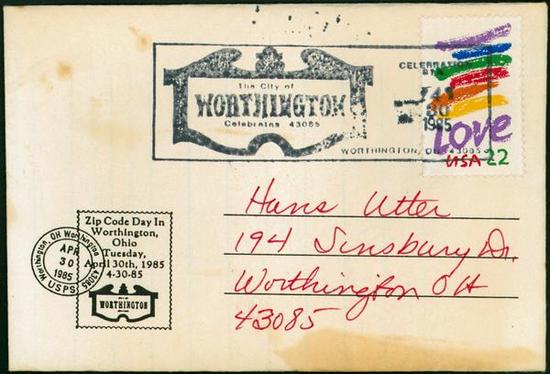 The City of
WORTHINGTON
Celebrates 43085
CELEBRATION
STA
30
1985
WORTHINGTON, OH 43085
Love
USA 22
Hans Utter
194 Sinsbury Dr.
Worthington OH
43085
Zip Code Day In
Worthington,
Ohio
Tuesday,
April 30th, 1985
4-30-85
WORTHINGTON
Worthington, OH Worthington 43085
APR
30
1985
USPS